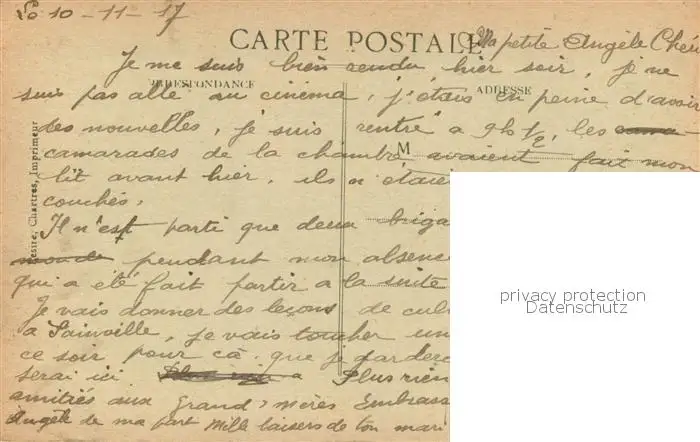 Le 10-11-17
CARTE POSTALE
Ma petite Angèle Chérie
Je me suis bien rendu hier soir, je ne
CORRESPONDANCE
ADRESSE
suis pas allé au cinema, j'étais en peine d'avoir
des nouvelles, je suis rentré a 9h ½, les
camarades de la chambre avaient fait mon
M
lit avant hier, ils n'étaie
couchés,
Il n'est parti que deux briga
pendant mon absenc
qui a été fait partir a la suite
Je vais donner des leçons de cul
a Sainville, je vais toucher un
ce soir pour çà, que je garderai
serai ici Plus rien
amitiés aux Grand-mères Embrasse
Angèle de ma part Mille baisers de ton mari
Chartres, Imprimeur
privacy protection
Datenschutz